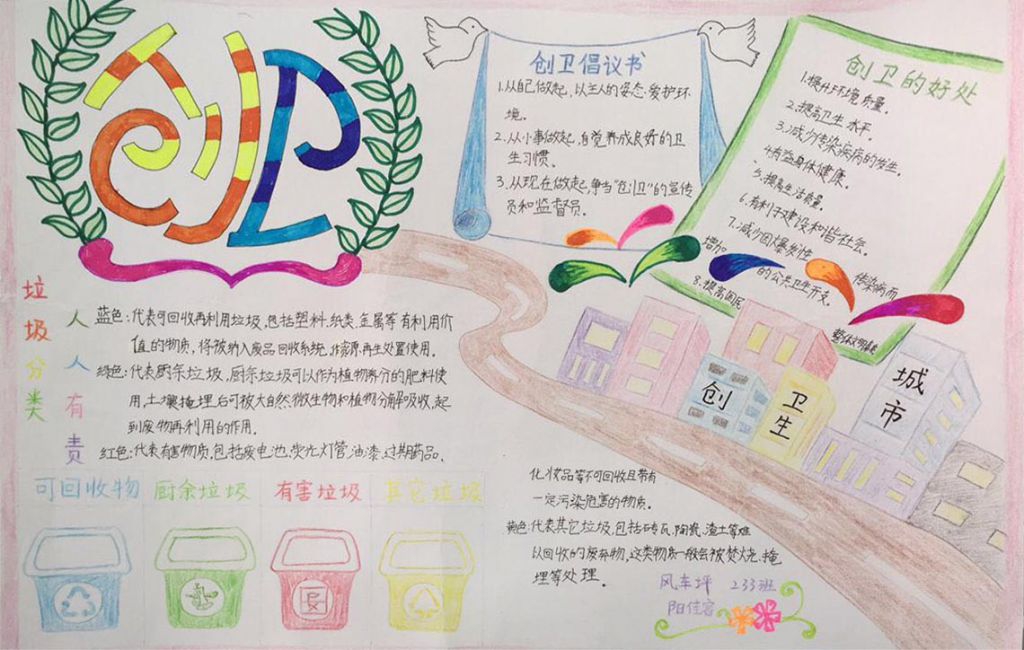 创卫
创卫倡议书
1.从自己做起,以主人的姿态,爱护环
境。
2.从小事做起,自觉养成良好的卫
生习惯。
3.从现在做起,争当“创卫”的宣传
员和监督员。
创卫的好处
1.提升环境质量。
2.提高卫生水平。
3.减少传染疾病的发生。
4.有益身体健康。
5.提高生活质量。
6.有利于建设和谐社会。
7.减少因爆发性
传染病而
增加
的公共卫生开支。
8.提高国民
整体文明程度
垃圾分类
人人有责
蓝色:代表可回收再利用垃圾,包括塑料,纸类,金属等有利用价
值的物质,将被纳入废品回收系统,作资源再生处置使用。
绿色:代表厨余垃圾,厨余垃圾可以作为植物养分的肥料使
用,土壤掩埋后可被大自然微生物和植物分解吸收,起
到废物再利用的作用。
红色:代表有害物质,包括废电池,荧光灯管,油漆,过期药品、
化妆品等不可回收且带有
一定污染危害的物质。
黄色:代表其它垃圾,包括砖瓦,陶瓷,渣土等难
以回收的废弃物,这类物质一般会被焚烧、掩
埋等处理。
可回收物 厨余垃圾 有害垃圾 其它垃圾
创 卫生 城市
风车坪 233班
阳佳容